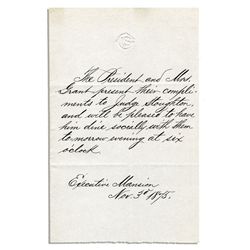 The President and Mrs.
Grant present their compli-
ments to Judge Stoughton,
and will be pleased to have
him dine socially with them
to-morrow evening at six
o'clock.
Executive Mansion
Nov. 3d 1875.